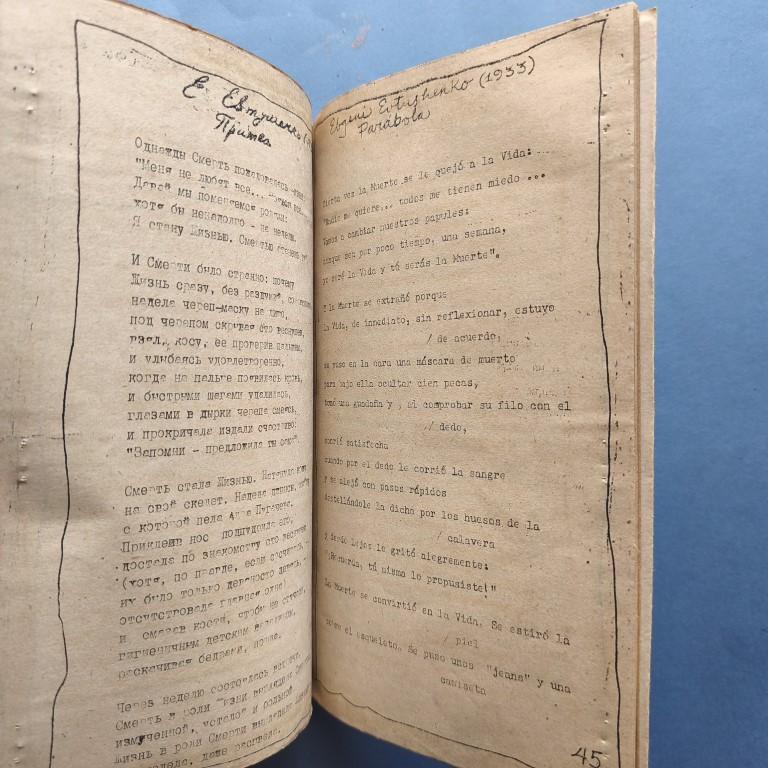 Е. Евтушенко
Притча
Однажды Смерть пожаловалась
"Меня не любят все...
Давай мы поменяемся ролями:
хотя бы ненадолго - на неделю.
Я стану Жизнью. Смертью
И Смерти было странно: почему
Жизнь сразу, без раздумий,
надела череп-маску на лицо,
под черепом скрывая сто веснушек,
взяла косу, ее проверив пальцем,
и улыбаясь удовлетворенно,
когда на пальце появилась кровь,
и быстрыми шагами удалилась,
глазами в дырки черепа смеясь,
и прокричала издали счастливо:
"Запомни - предложила ты сама".
Смерть стала Жизнью. Натянула кожу
на свой скелет. Надела джинсы,
с которой пела Алла Пугачева.
Приклеив нос
достала по знакомству сто веснушек
(хотя, по правде, если сосчитать,
их было только девяносто девять,
отсутствовала главная одна)
и смазав кости, чтобы не стучали,
гигиеничным детским вазелином,
раскачивая бедрами, пошла.
Через неделю состоялась встреча.
Смерть в роли Жизни выглядела
измученной, усталой и больной.
Жизнь в роли Смерти выглядела
даже расцвела.
Evgeni Evtushenko (1933)
Parábola
Cierta vez la Muerte se le quejó a la Vida:
"Nadie me quiere... todos me tienen miedo ...
Vamos a cambiar nuestros papeles:
aunque sea por poco tiempo, una semana,
yo seré la Vida y tú serás la Muerte".
Y la Muerte se extrañó porque
la Vida, de inmediato, sin reflexionar, estuvo
/ de acuerdo,
se puso en la cara una máscara de muerto
para bajo ella ocultar cien pecas,
tomó una guadaña y , al comprobar su filo con el
/ dedo,
sonrió satisfecha
cuando por el dedo le corrió la sangre
y se alejó con pasos rápidos
destellándole la dicha por los huesos de la
/ calavera
y desde lejos le gritó alegremente:
"¡Recuerda, tú misma lo propusiste!"
La Muerte se convirtió en la Vida. Se estiró la
/ piel
sobre el esqueleto. Se puso unos "jeans" y una
camiseta
45